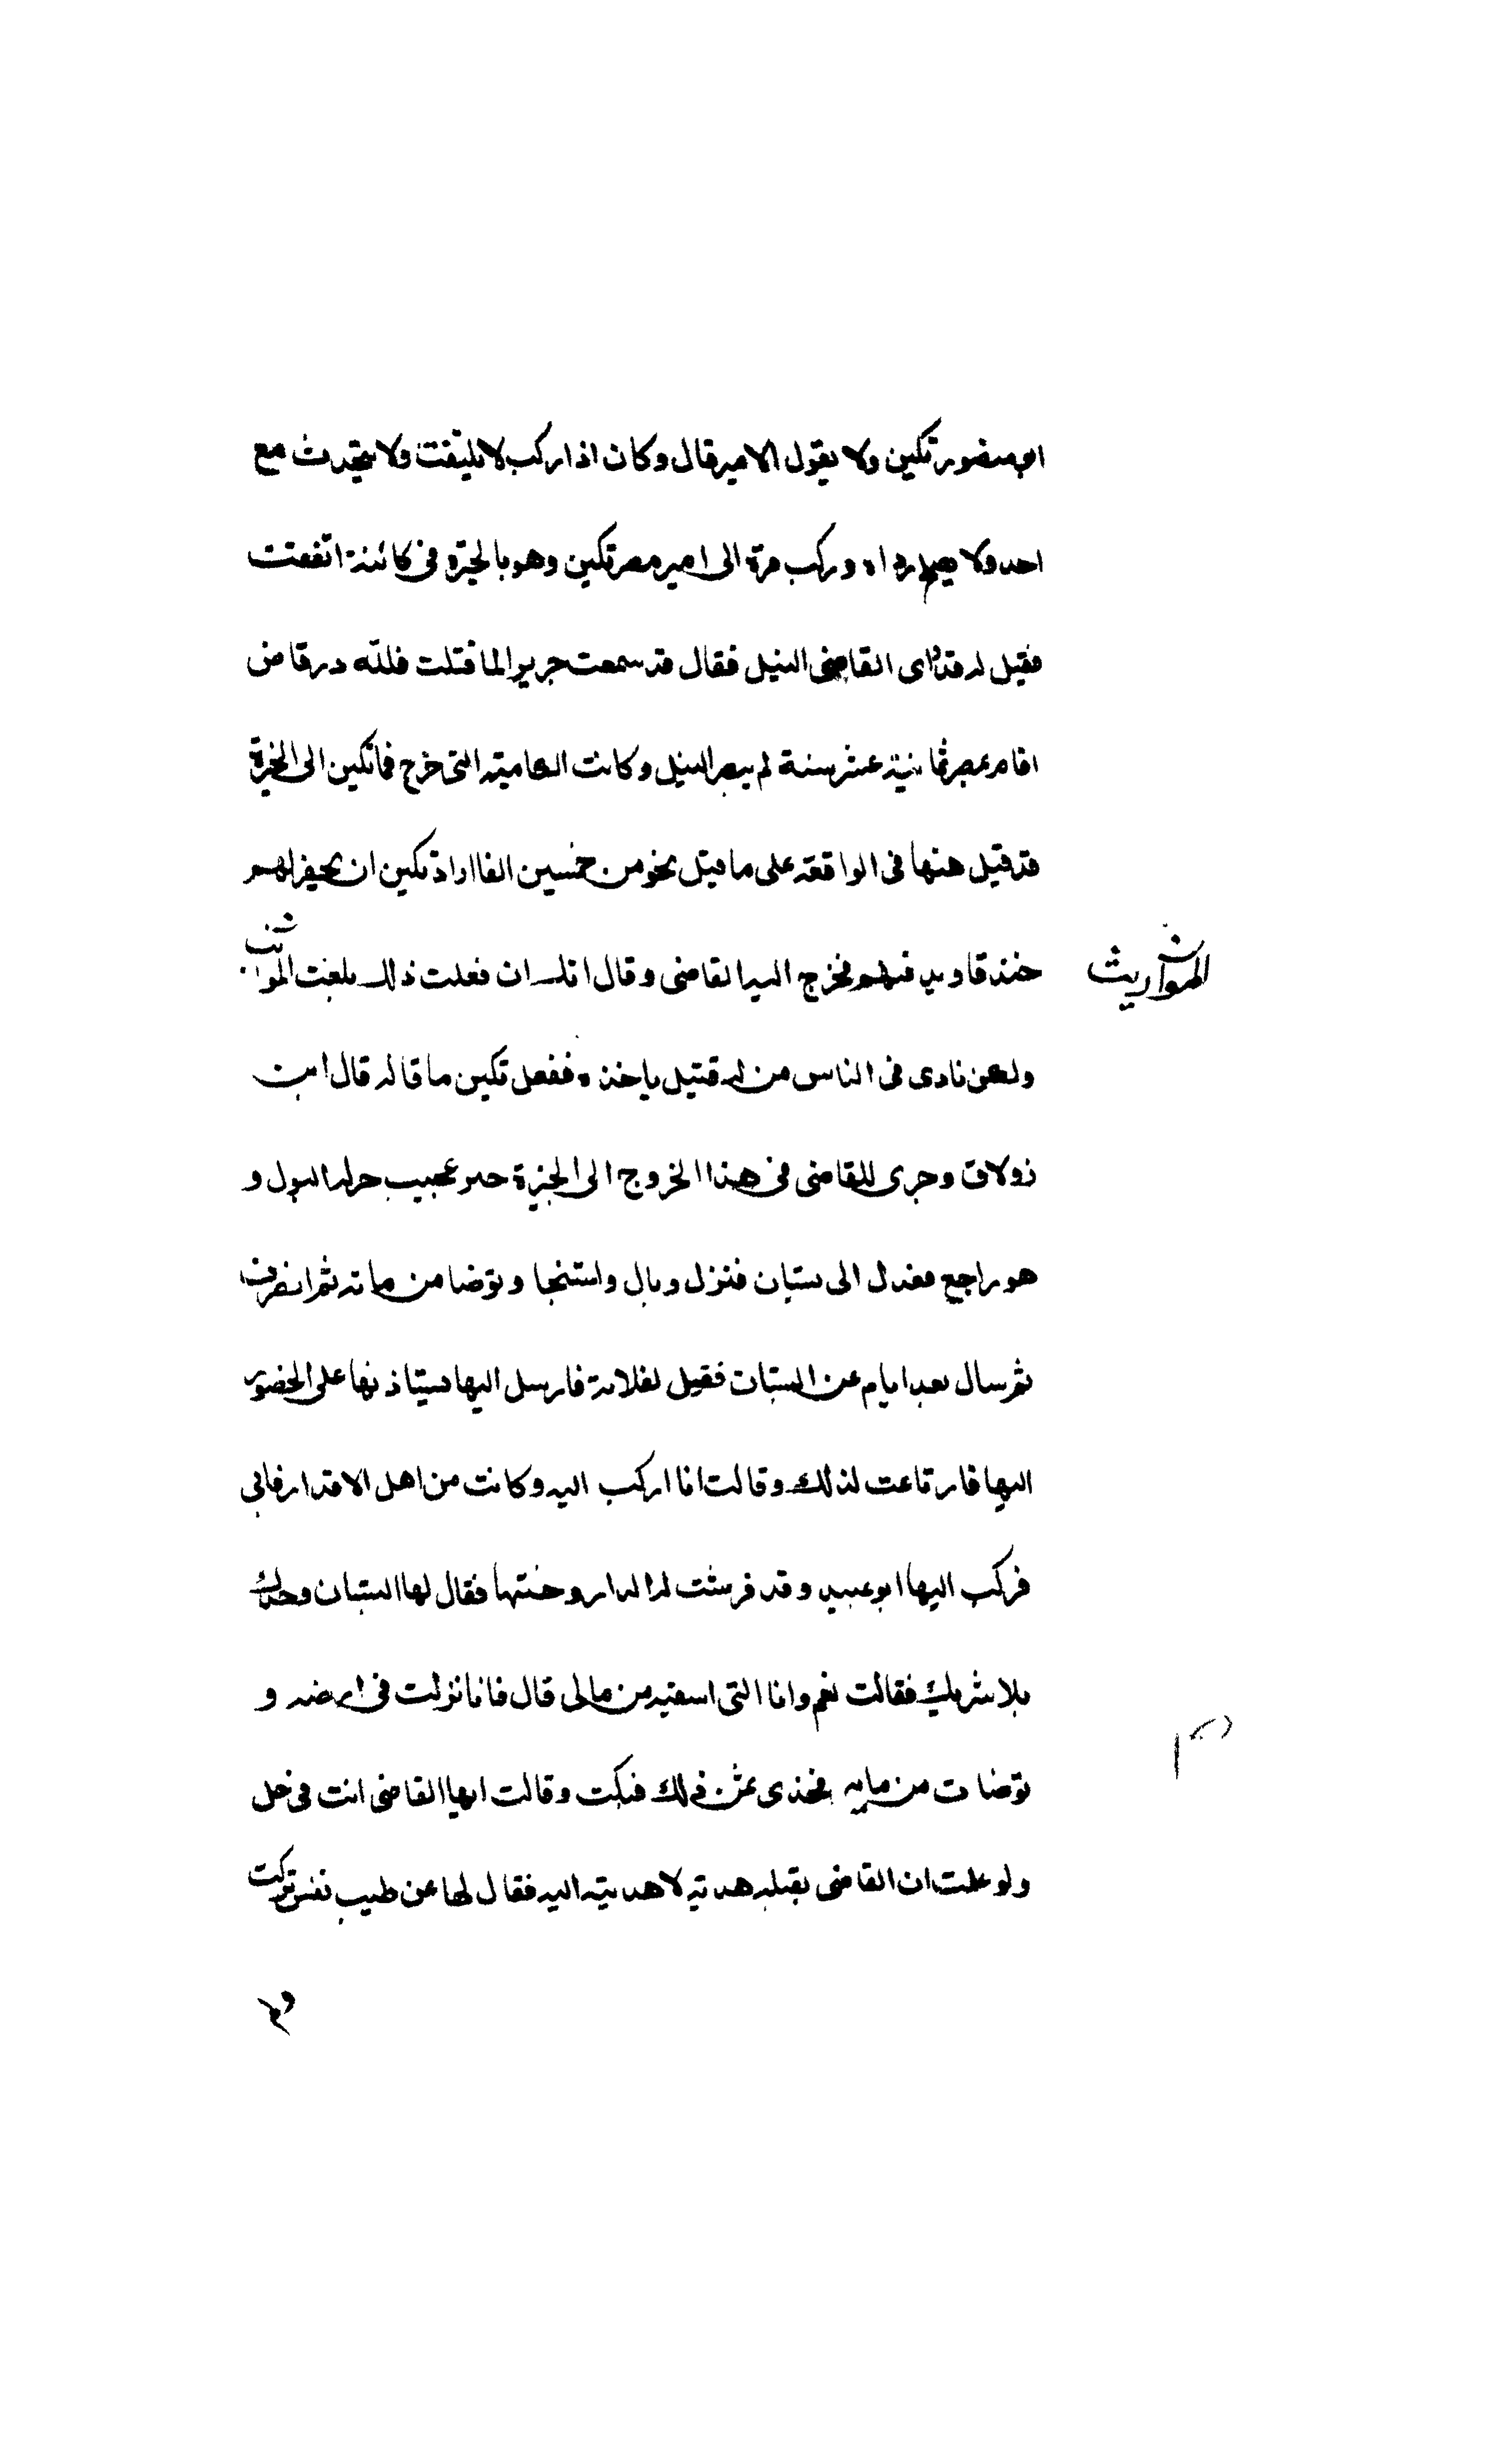 ابو منصور تكين ولا يقول الامير قال وكان اذا ركب لا يلتفت ولا يتحدث مع
احد ولا يصلح رداه وركب مرة الى امير مصر تكين وهو بالجيزة فى كائنة اتفقت
فقيل له قد راى القاضى النيل فقال قد سمعت خرير الما قلت فلله در قاض
اقام بمصر ثمانية عشر سنة لم يبصر النيل وكانت التى خرج فيها تكين الى الجيزة
قد قتل منها فى الواقعة على ما قيل نحو من خمسين الفا اراد تكين ان يحفر لهم
خندقا فيهم فخرج اليه القاضى وقال انك ان فعلت ذلك تلفت المواريث
المواريث
ولكن نادى فى الناس من له قتيل ياخذه ففعل تكين ما قاله قال ابن
زولاق وجرى للقاضى فى هذا الخروج الى الجيزة خبر عجيب البول و
هو راجع فعدل الى بستان فنزل وبال واستنجا وتوضا من مائه ثم انصرف
ثم سال بعد ايام عن البستان فقيل لفلانة فارسل اليها يستاذنها على الحضور
اليها فارتاعت لذلك وقالت انا اركب اليه وكانت من اهل الاقدار فابى
فركب اليها ابو عبيد وقد فرشت له الدار وحسنتها فقال لها البستان وحدك
بلا شريك فقالت نعم وانا التى اسقيه من مالى قال فانا نزلت فى ارضه و
توضات من مايه فخذى ثمن ذلك فبكت وقالت ايها القاضى انت فى حل
ولو علمت ان القاضى يقبله هدية لاهديته اليه فقال لها عن طيب نفس تركت